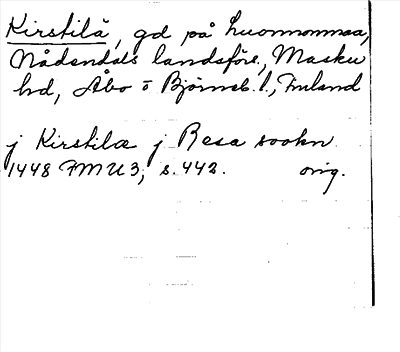 Kirstilä, gd på Luonnonmaa,
Nådendals landsförs., Masku
hd, Åbo o Björneb. l., Finland
j Kirstilæ j Resa sookn
1448 FMU 3, s. 442. orig.